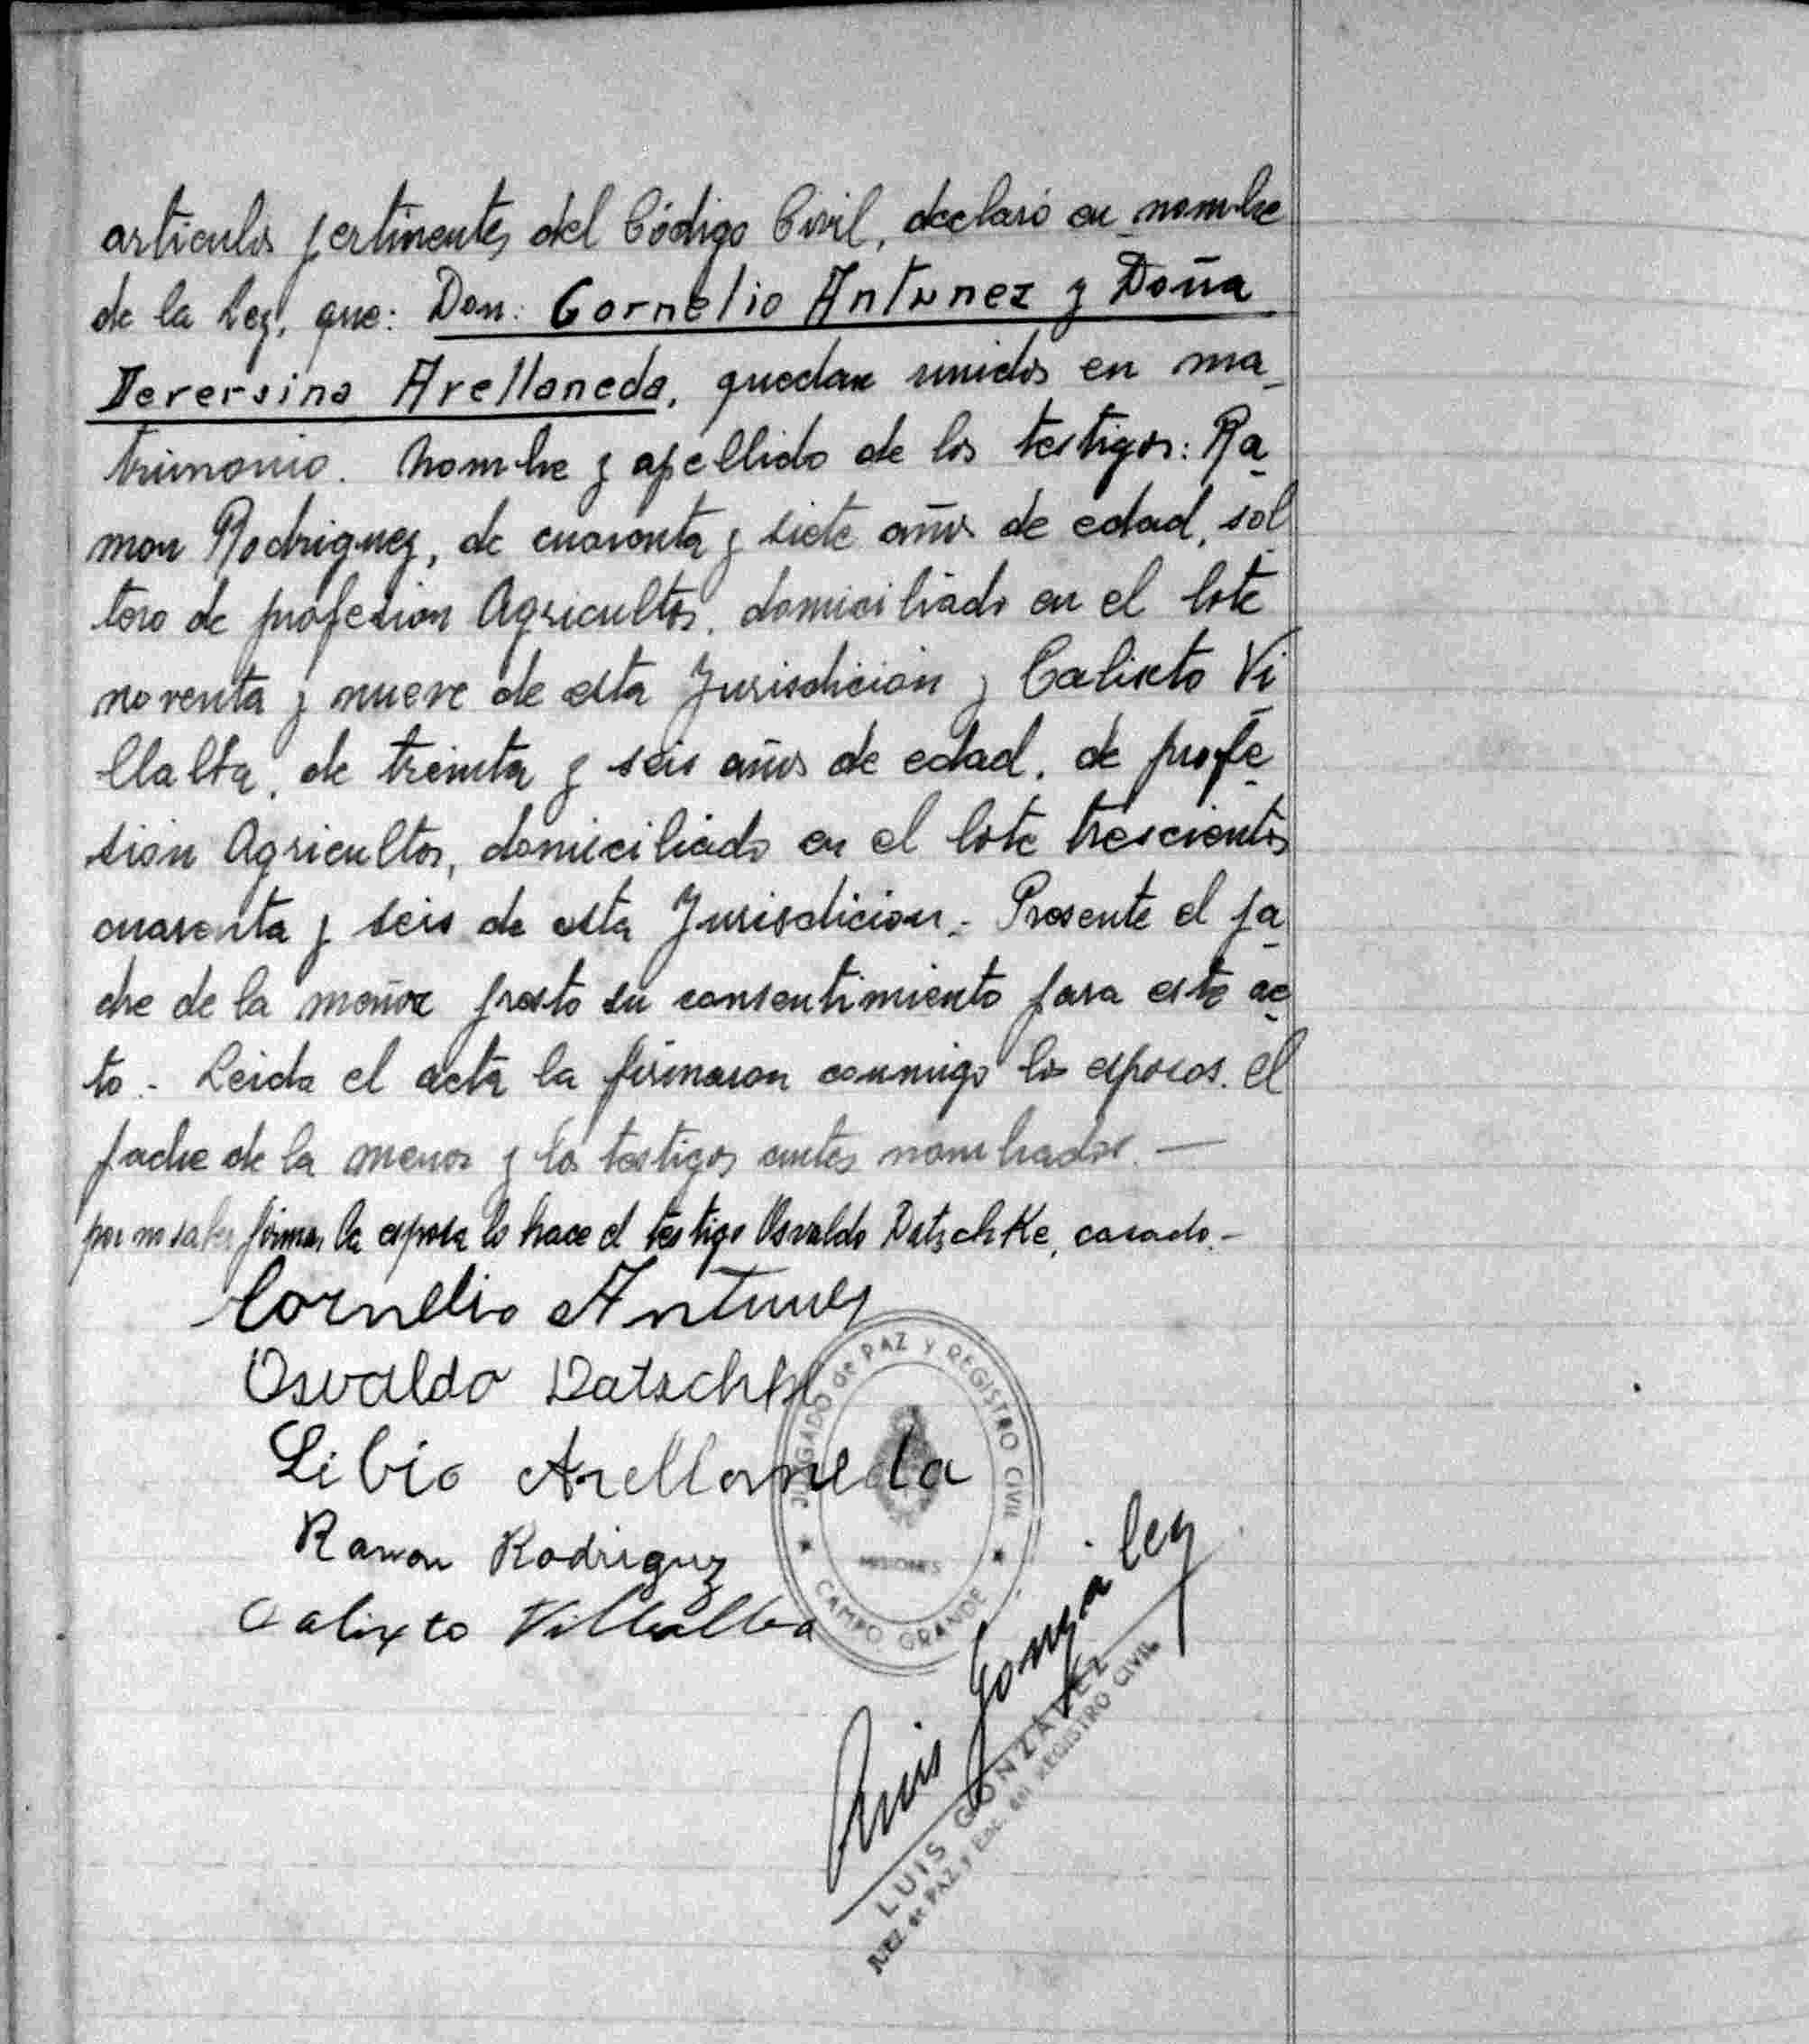 articulos pertinentes del Código Civil, declaró en nombre
de la Ley, que: Don: Cornelio Antunez y Doña
Deversina Arellaneda, quedan unidos en ma_
trimonio. Nombre y apellido de los testigos: Ra_
mon Rodriguez, de cuarenta y siete años de edad, sol_
tero de profesion Agricultor, domiciliado en el lote
noventa y nueve de esta Jurisdicion y Calixto Vi_
llalba, de treinta y seis años de edad, de profe_
sion Agricultor, domiciliado en el lote trescientos
cuarenta y seis de esta Jurisdicion.- Presente el pa_
dre de la menor presto su consentimiento para este ac_
to.- Leida el acta la firmaron conmigo los esposos, el
padre de la menor y los testigos antes nombrados.—
por no saber firmar la esposa lo hace el testigo Osvaldo Datschke, casado.-
Cornelio Antunez
Osvaldo Datschke
Libio Arellaneda
Ramon Rodriguez
Calixto Villalba
JUZGADO de PAZ Y REGISTRO CIVIL
MISIONES
CAMPO GRANDE
Luis González
LUIS GONZALEZ
JUEZ de PAZ y Enc. del REGISTRO CIVIL